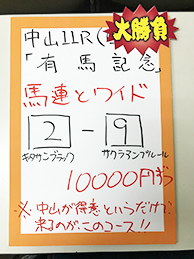 大勝負
中山11R(
「有馬記念」
馬連とワイド
2-9
キタサンブラック サクラアンプルール
10000円ずつ
※中山が得意というだけで
来るのがこのコース!!